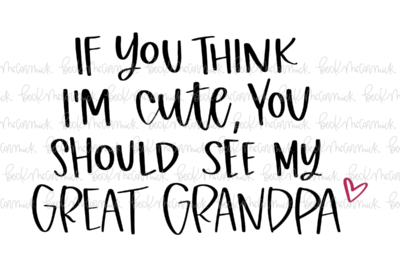 IF YOU THINK
I'M cute, YOU
SHOULD SEE MY
GREAT GRANDPA